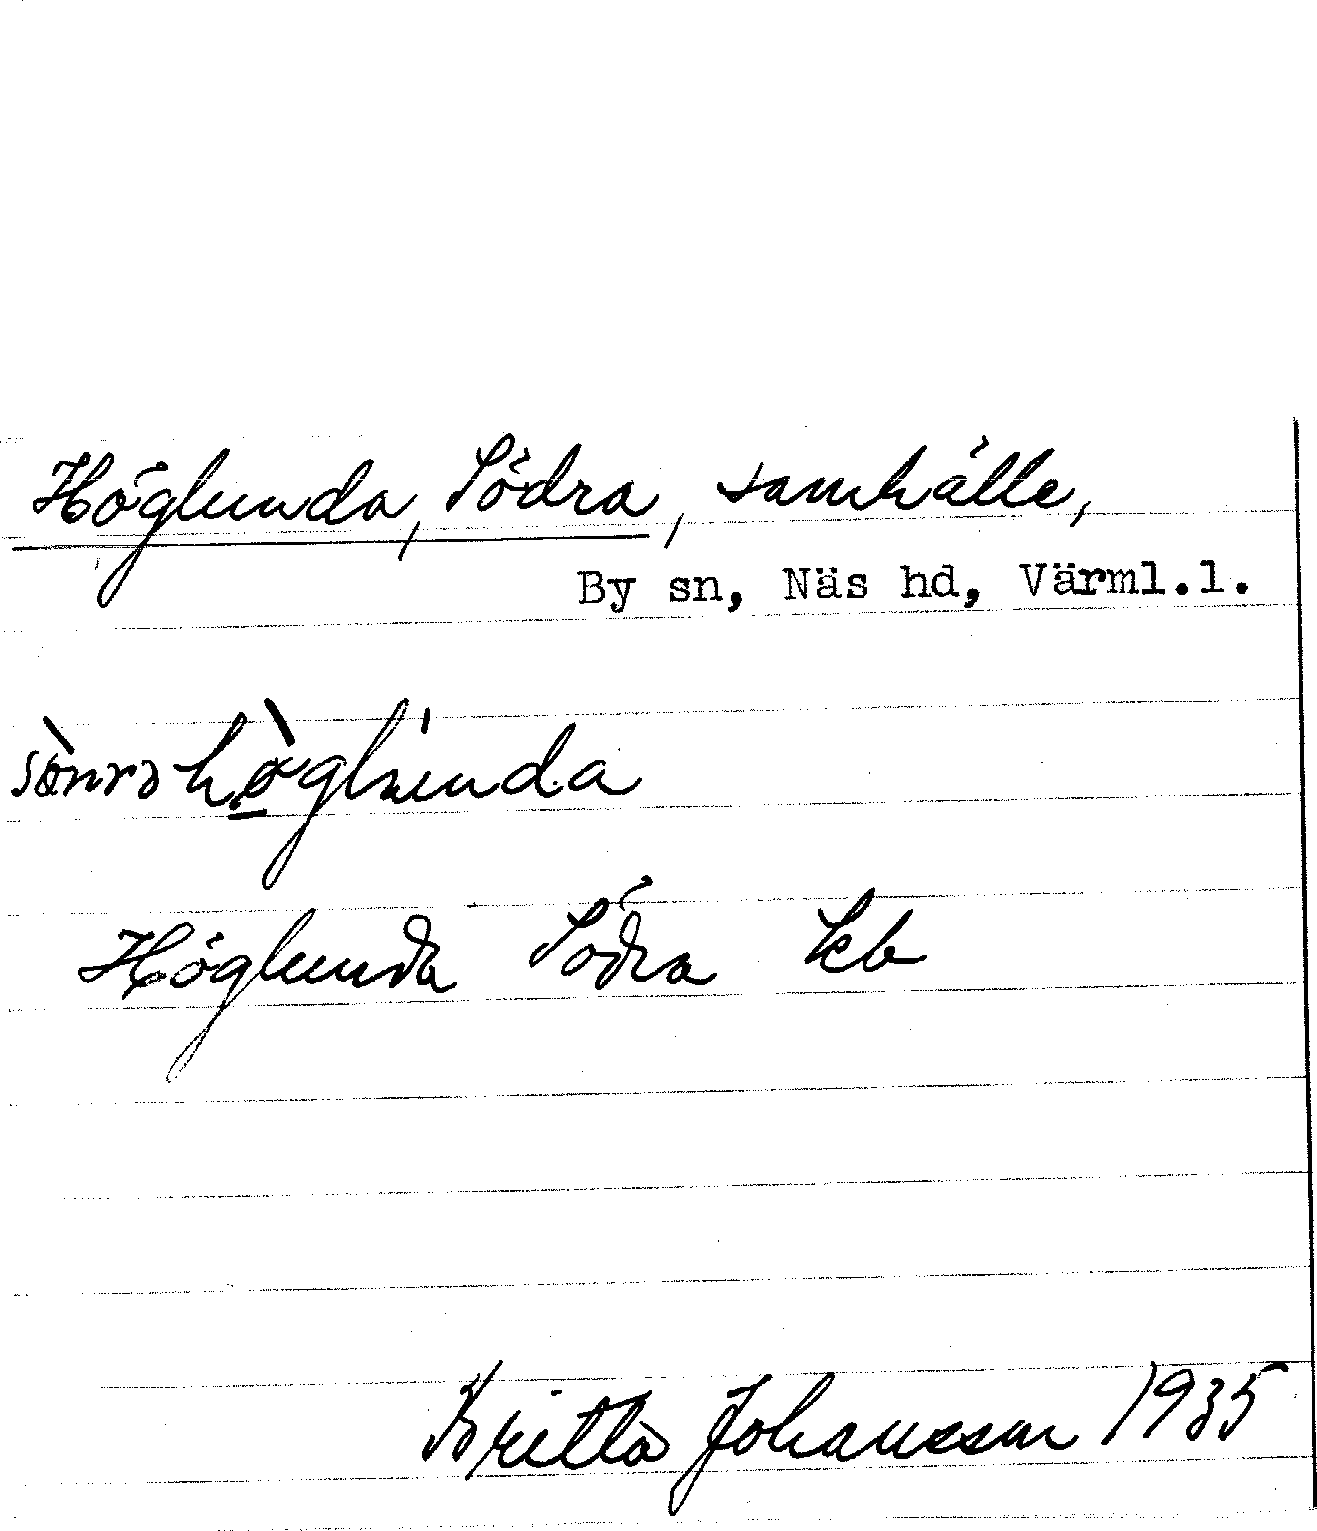 Höglunda, Södra, samhälle,
By sn, Näs hd, Värml.l.
sònrə hø̀glunda
Höglunda Södra kb
Britta Johansson 1935